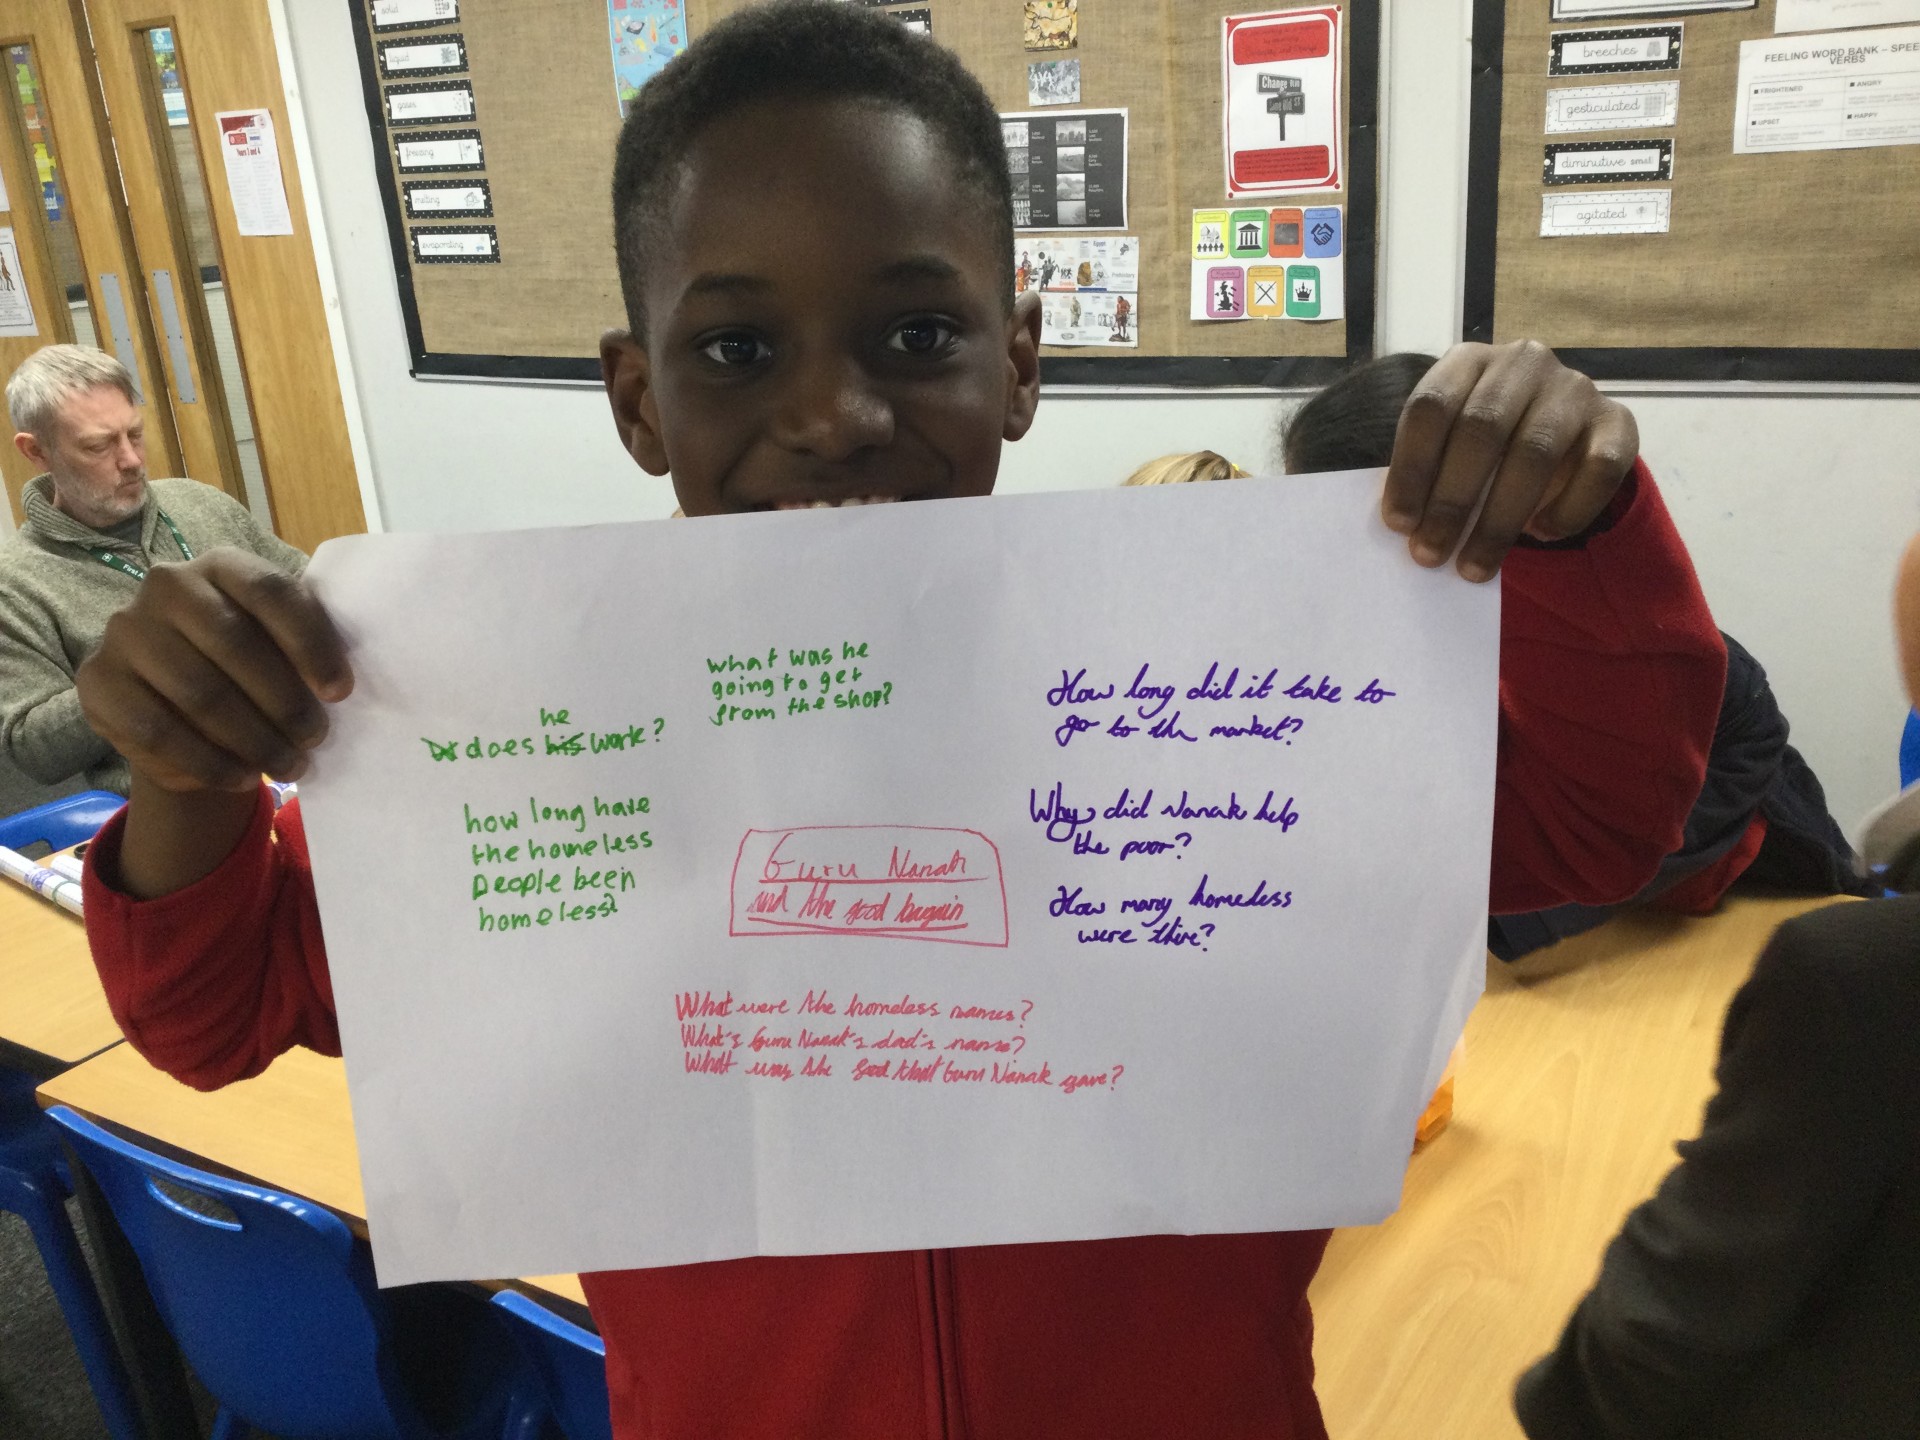 solid
liquid
gases
freezing
melting
evaporating
Years 3 and 4
Change
breeches
gesticulated
diminutive small
agitated
FEELING WORD BANK – SPEE
VERBS
FRIGHTENED
ANGRY
UPSET
HAPPY
First A
what was he
going to get
from the shop?
he
does his work?
how long have
the homeless
People been
homeless?
Guru Nanak
and the good bargain
How long did it take to
go to the market?
Why did Nanak help
the poor?
How many homeless
were there?
What were the homeless names?
What's Guru Nanak's dad's name?
What was the food that Guru Nanak gave?